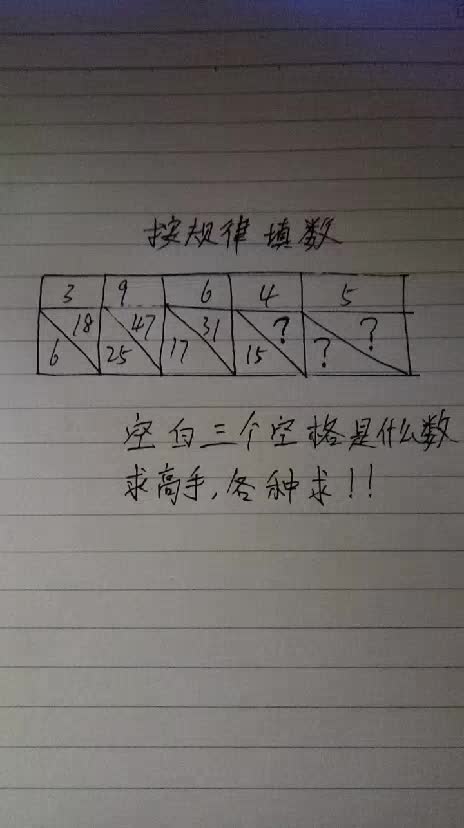 按规律填数
3 9 6 4 5
18 47 31 ? ?
6 25 17 15 ?
空白三个空格是什么数
求高手,各种求!!